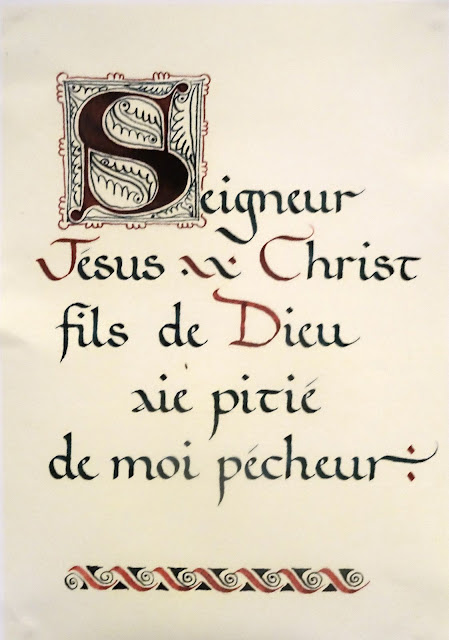 Seigneur
Jésus Christ
fils de Dieu
aie pitié
de moi pécheur